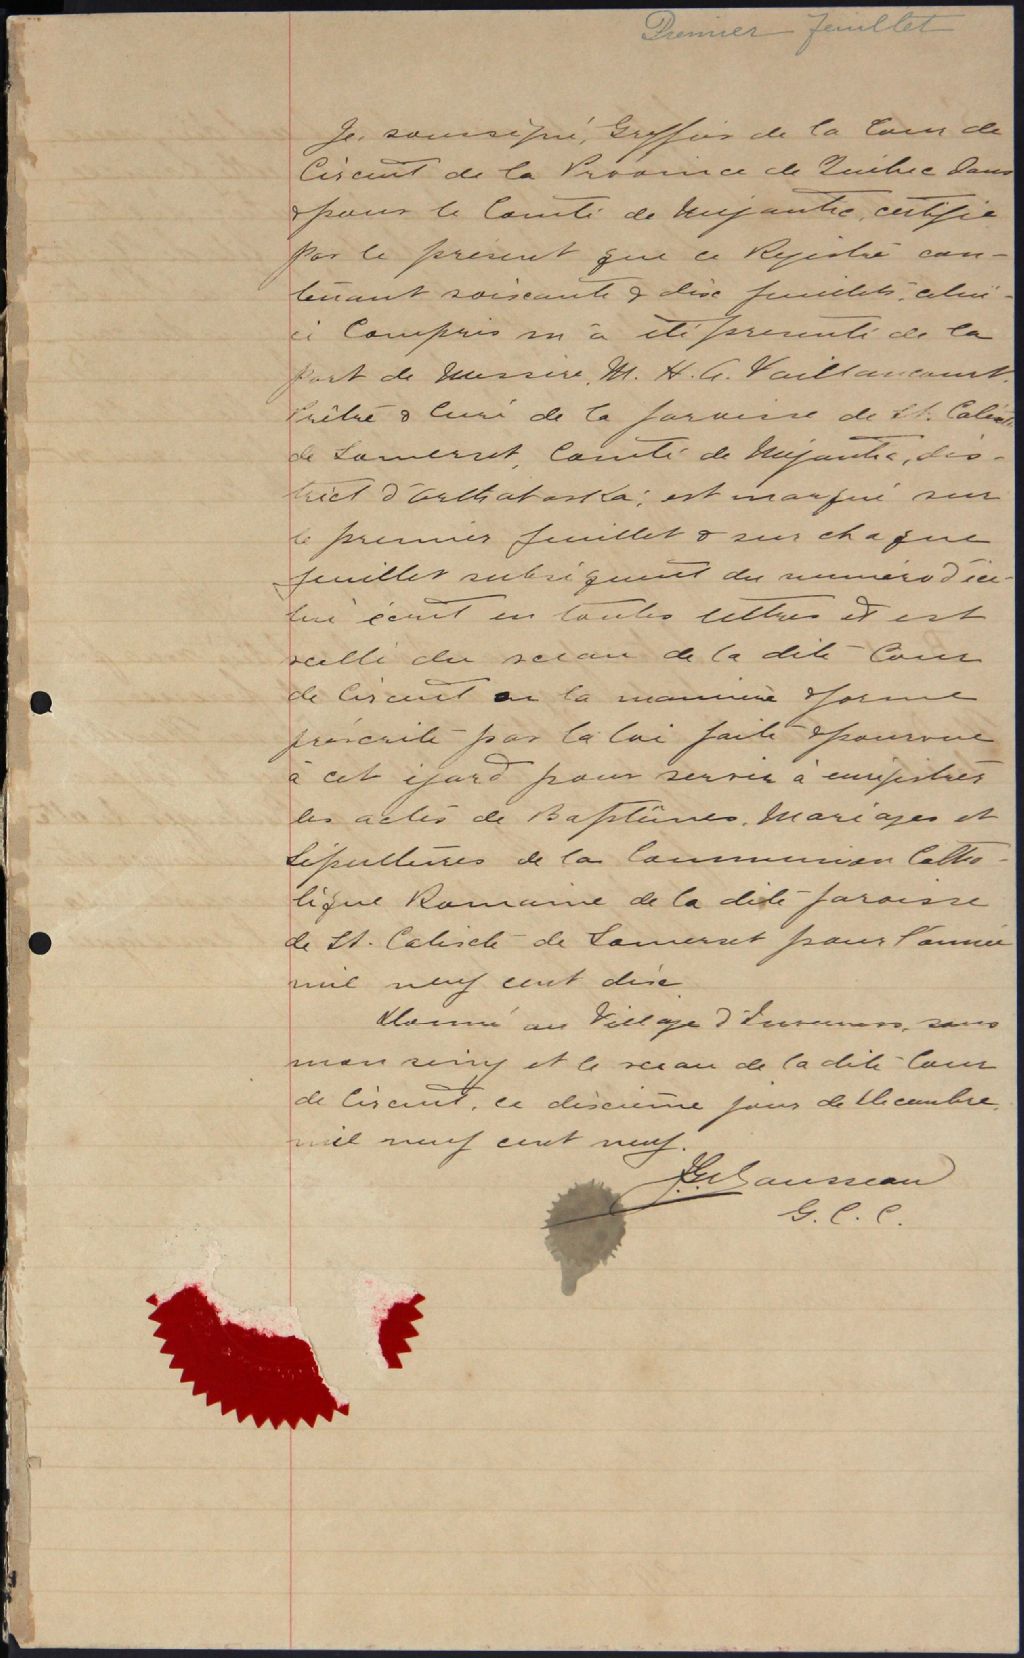 Premier feuillet
Je, soussigné, Greffier de la Cour de
Circuit de la Province de Québec dans
& pour le Comté de Mégantic, certifie
par le présent que ce Régistre con-
tenant soixante & dix feuillets, celui-
ci Compris m'a été présenté de la
part de Messire, M. H. A. Vaillancourt,
Prêtre & Curé de la paroisse de St. Calixte
de Somerset, Comté de Mégantic, dis-
trict d'Arthabaska; est marqué sur
le premier feuillet & sur chaque
feuillet subséquent du numéro d'ice-
lui écrit en toutes lettres et est
scellé du sceau de la dite Cour
de Circuit en la manière & forme
préscrite par la loi faite & pourvue
à cet égard pour servir à enrégistrer
les actes de Baptêmes, Mariages et
Sépultures de la Communion Catho-
lique Romaine de la dite paroisse
de St. Calixte de Somerset pour l'année
mil neuf cent dix
Donné au Village d'Inverness, sous
mon seing et le sceau de la dite Cour
de Circuit, ce dixième jour de Décembre,
mil neuf cent neuf.
G. C. C.